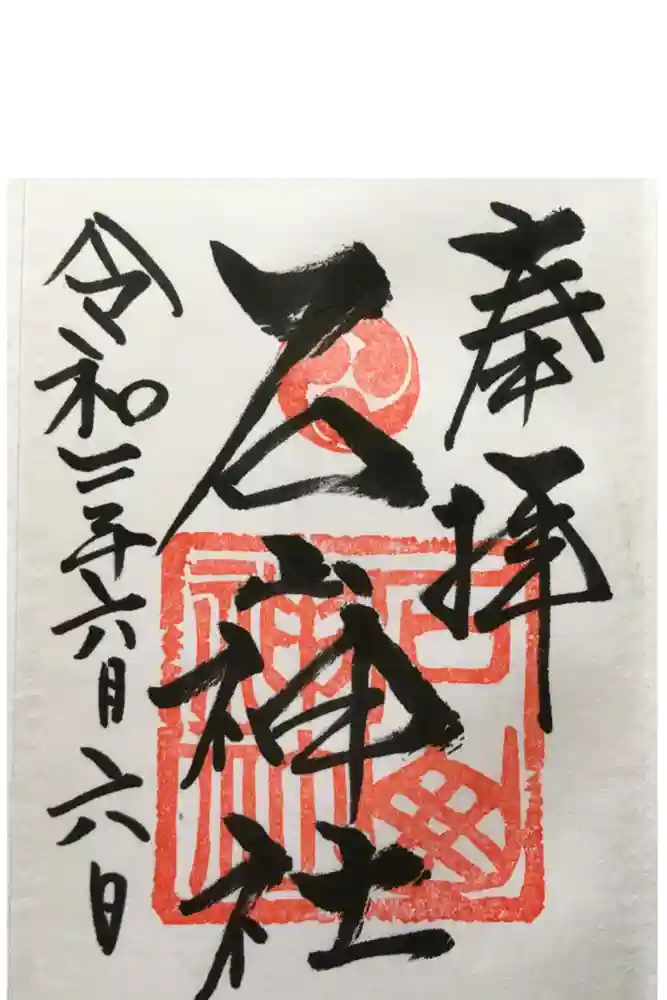 奉拝
神社
令和三年六月六日